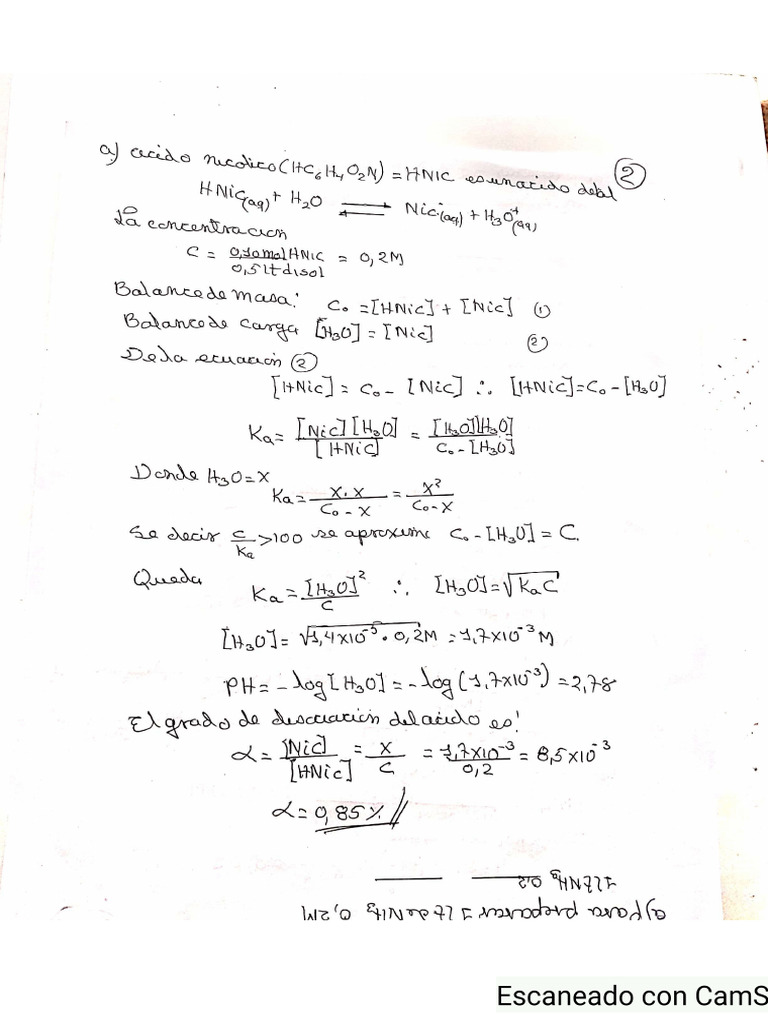 a) acido nicotico (HC₆H₄O₂N) = HNIC es un acido debil ②
HNic(aq) + H₂O ⇌ Nic⁻(aq) + H₃O⁺(aq)
La concentración
C = 0,10mol HNic / 0,5 lt disol = 0,2M
Balance de masa: C₀ = [HNic] + [Nic] ①
Balance de carga [H₃O] = [Nic] ②
De la ecuación ②
[HNic] = C₀ - [Nic] ∴ [HNic] = C₀ - [H₃O]
Ka = [Nic][H₃O] / [HNic] = [H₃O][H₃O] / C₀ - [H₃O]
Donde H₃O = X
Ka = X.X / C₀ - X = X² / C₀ - X
Se decir C/Ka > 100 se aproxime C₀ - [H₃O] = C.
Queda Ka = [H₃O]² / C ∴ [H₃O] = √KaC
[H₃O] = √1,4x10⁻⁵ . 0,2M = 1,7x10⁻³ M
PH = - log [H₃O] = - log (1,7x10⁻³) = 2,78
El grado de disociación del acido es:
α = [Nic] / [HNic] = X / C = 1,7x10⁻³ / 0,2 = 8,5x10⁻³
α = 0,85% //
1 lt NH₃ 0,2
a) para preparar 1 lt de NH₃ 0,2M
Escaneado con CamS